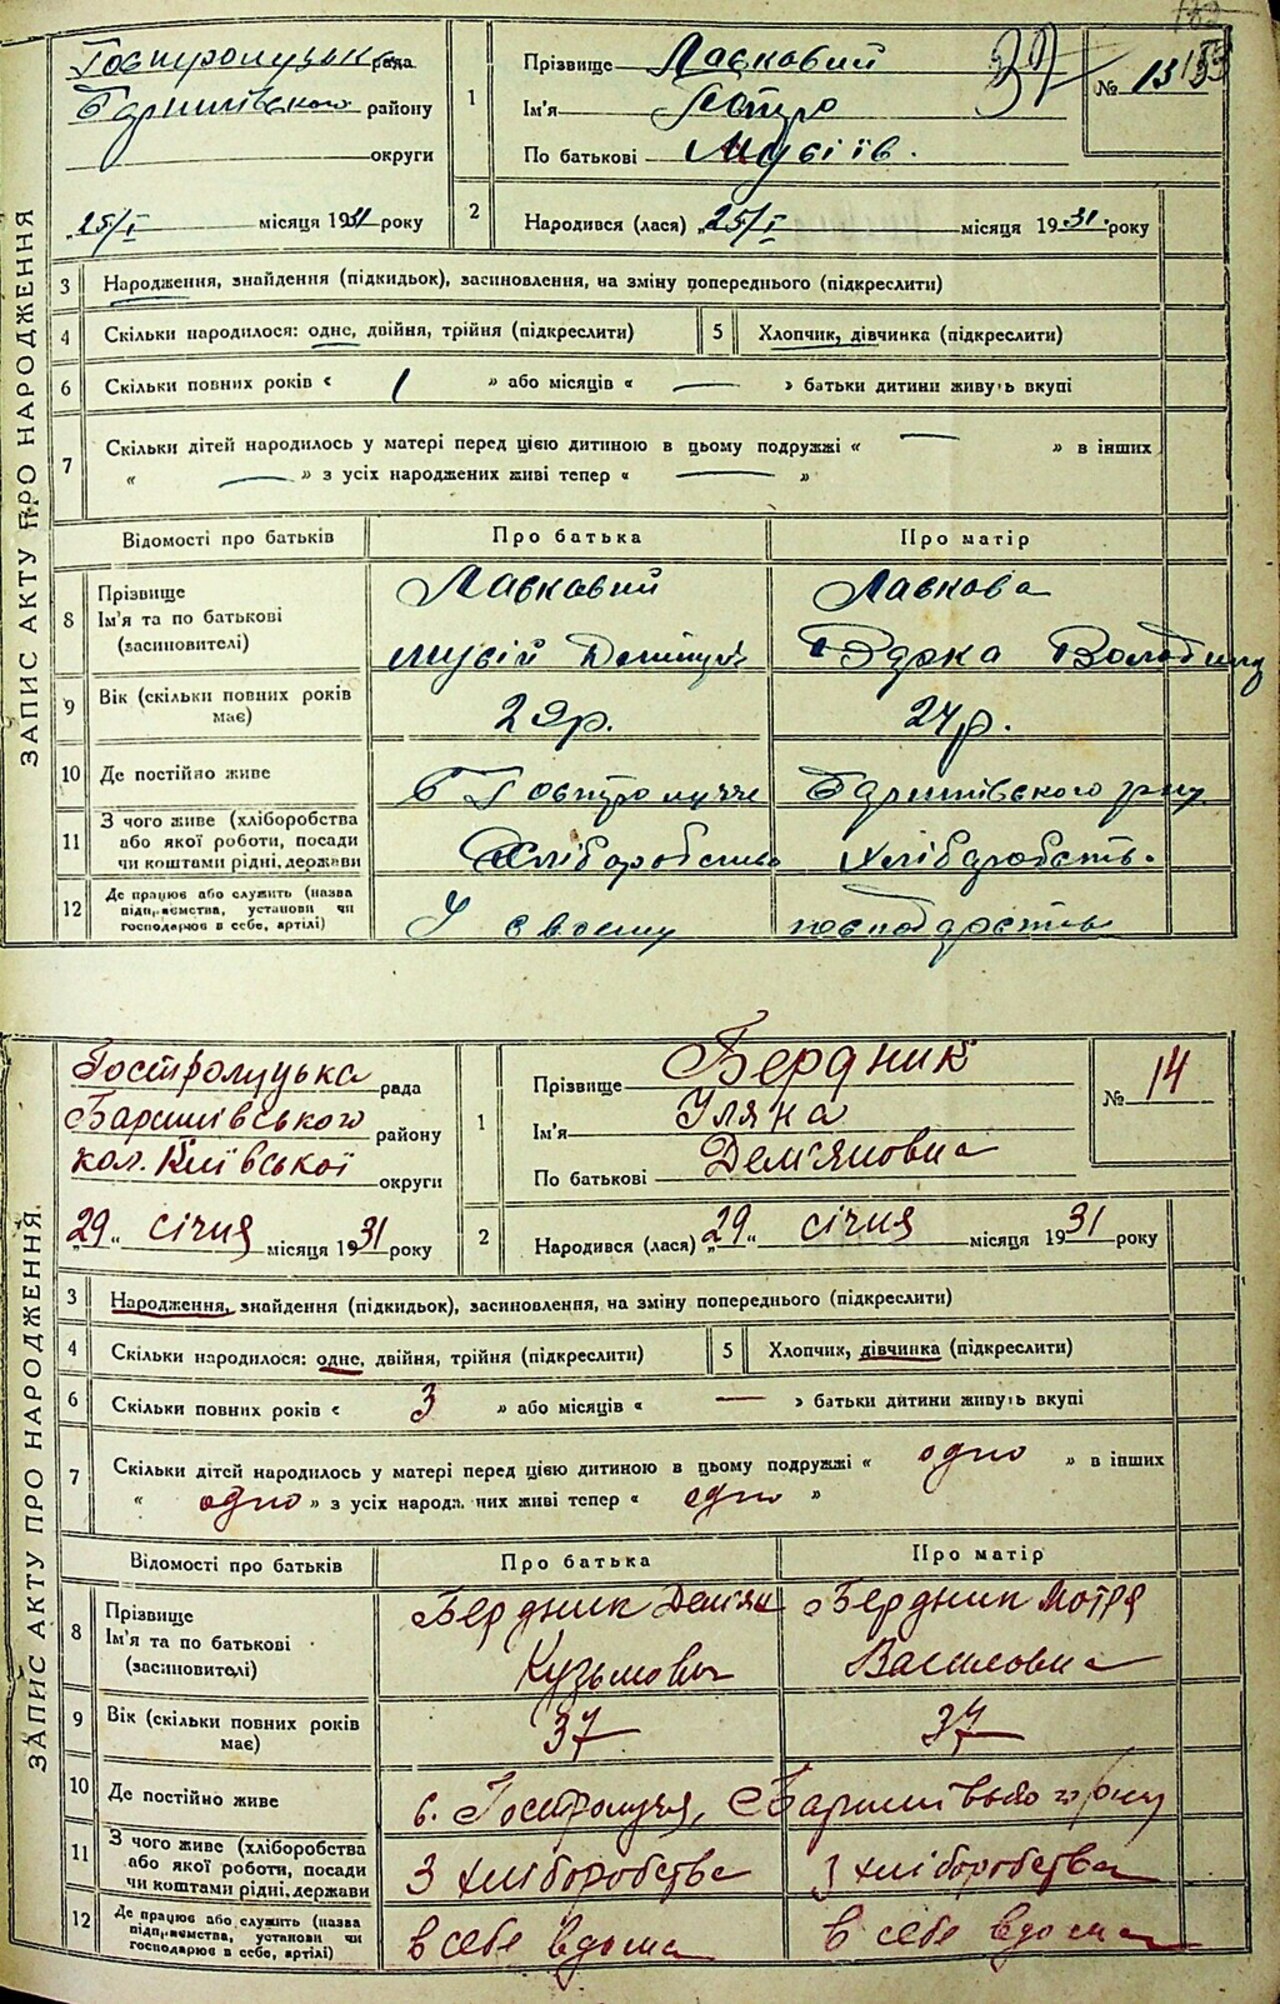 Гостролуцьк рада
Баришівського району
округи
„25/I місяця 1931 року
1
Прізвище Лавковий
Ім'я Петро
По батькові Мусіїв.
№ 13
2
Народився (лася) „25/I місяця 1931. року
ЗАПИС АКТУ ПРО НАРОДЖЕННЯ
3 Народження, знайдення (підкидьок), засиновлення, на зміну попереднього (підкреслити)
4 Скільки народилося: одне, двійня, трійня (підкреслити) 5 Хлопчик, дівчинка (підкреслити)
6 Скільки повних років « 1 » або місяців « — » батьки дитини живуть вкупі
7 Скільки дітей народилось у матері перед цією дитиною в цьому подружжі « — » в інших
« — » з усіх народжених живі тепер « — »
Відомості про батьків Про батька Про матір
8 Прізвище Лавковий Лавкова
Ім'я та по батькові
(засиновителі) Мусій
9 Вік (скільки повних років має) 29р. 24р.
10 Де постійно живе с Гостролуччє Баришівського р-ну
11 З чого живе (хліборобства
або якої роботи, посади
чи коштами рідні, держави Хліборобство хліборобств.
12 Де працює або служить (назва
підприємства, установи чи
господарює в себе, артілі) У своєму господарстві
Гостролуцька рада
Баришівського району
кол. Київської округи
„29„ січня місяця 1931 року
1
Прізвище Бердник
Ім'я Уляна
По батькові Дем'яновна
№ 14
2
Народився (лася) „29„ січня місяця 1931 року
ЗАПИС АКТУ ПРО НАРОДЖЕННЯ.
3 Народження, знайдення (підкидьок), засиновлення, на зміну попереднього (підкреслити)
4 Скільки народилося: одне, двійня, трійня (підкреслити) 5 Хлопчик, дівчинка (підкреслити)
6 Скільки повних років « 3 » або місяців « — » батьки дитини живуть вкупі
7 Скільки дітей народилось у матері перед цією дитиною в цьому подружжі « одно » в інших
« одно » з усіх народжених живі тепер « одно »
Відомості про батьків Про батька Про матір
8 Прізвище Бердник Дем'ян Бердник Мотря
Ім'я та по батькові
(засиновителі) Кузьмович Василовна
9 Вік (скільки повних років має) 37 37
10 Де постійно живе с. Гостролуччя, Баришівського р-ну
11 З чого живе (хліборобства
або якої роботи, посади
чи коштами рідні, держави З хліборобства З хліборобства
12 Де працює або служить (назва
підприємства, установи чи
господарює в себе, артілі) в себе вдома в себе вдома